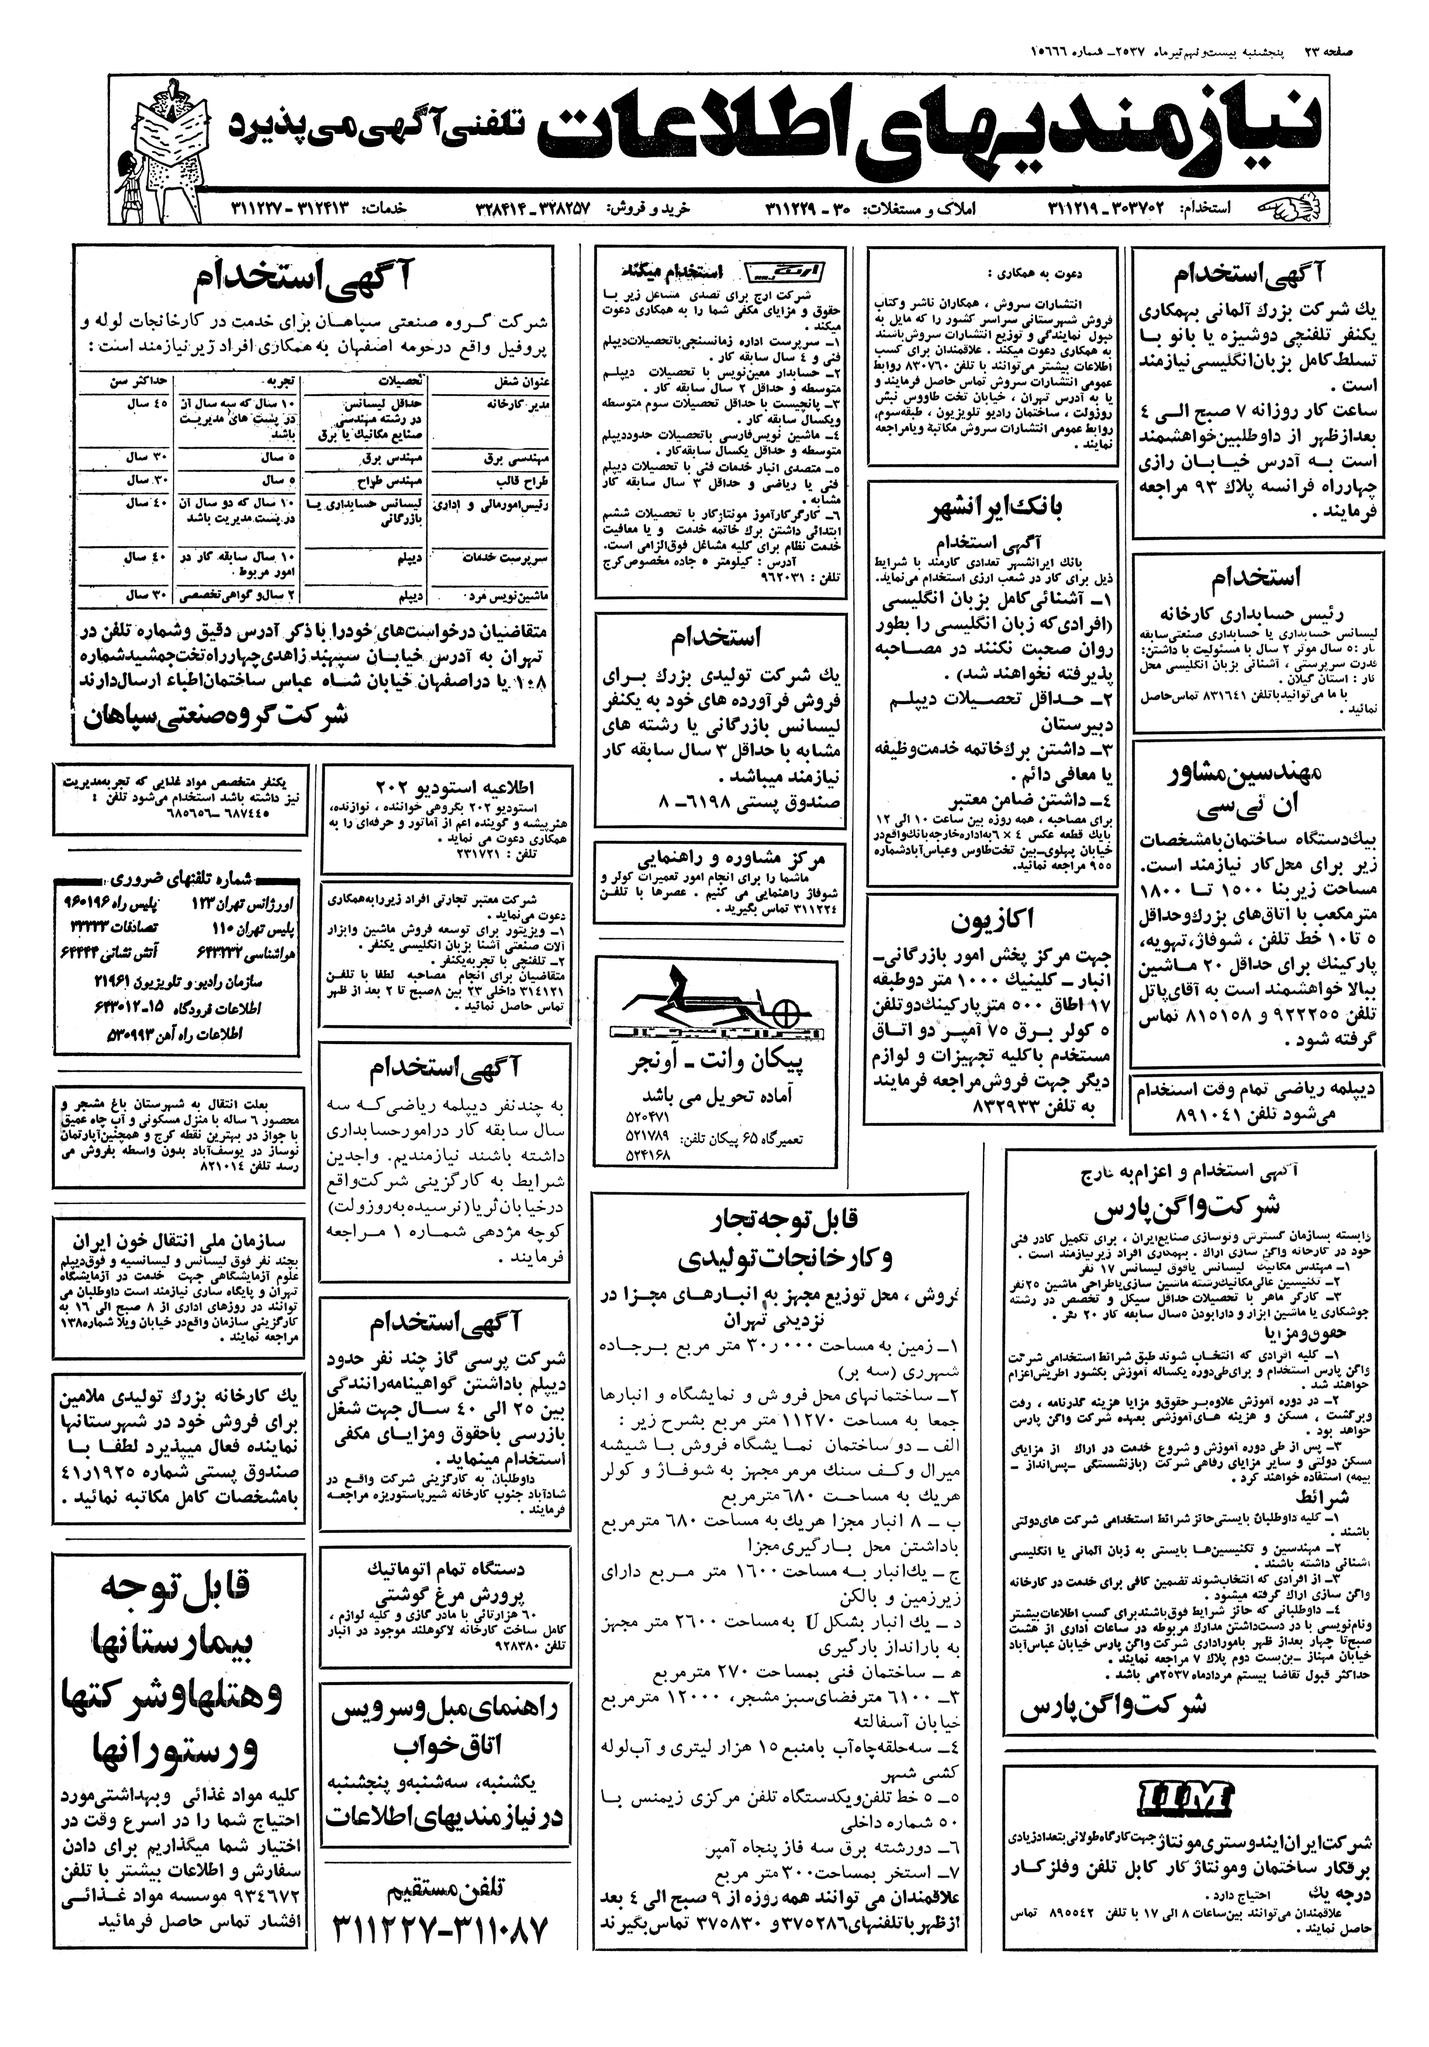 صفحه ۲۳ پنجشنبه بیست و نهم تیر ماه ۲۵۳۷ـ شماره ۱۵۶۶۶
نیازمندیهای اطلاعات تلفنی آگهی می‌پذیرد
استخدام: ۳۰۳۷۰۲ـ۳۱۱۲۱۹ املاک و مستغلات: ۳۰ـ۳۱۱۲۲۹ خرید و فروش: ۳۲۸۲۵۷ـ۳۲۸۴۱۴ خدمات: ۳۱۲۴۱۳ـ۳۱۱۲۲۷
آگهی استخدام
یك شركت بزرك آلمانی بهمکاری
یکنفر تلفنچی دوشیزه یا بانو با
تسلط کامل بزبان انگلیسی نیازمند
است .
ساعت کار روزانه ۷ صبح الی ۴
بعدازظهر از داوطلبین خواهشمند
است به آدرس خیابان رازی
چهارراه فرانسه پلاك ۹۳ مراجعه
فرمایند .
استخدام
رئیس حسابداری کارخانه
لیسانس حسابداری یا حسابداری صنعتی سابقه
کار ۵۰ سال موثر ۲ سال با مسئولیت با داشتن:
قدرت سرپرستی ، آشنائی بزبان انگلیسی محل
کار : استان گیلان .
با ما می‌توانید با تلفن ۸۳۱۶۴۱ تماس حاصل
نمائید .
مهندسین مشاور
ان تی سی
بیك دستگاه ساختمان با مشخصات
زیر برای محل کار نیازمند است.
مساحت زیربنا ۱۵۰۰ تا ۱۸۰۰
متر مکعب با اتاق‌های بزرك و حداقل
۵ تا ۱۰ خط تلفن ، شوفاژ، تهویه،
پارکینك برای حداقل ۲۰ ماشین
ببالا خواهشمند است به آقای پاتل
تلفن ۹۲۲۲۵۵ و ۸۱۵۱۵۸ تماس
گرفته شود .
دیپلمه ریاضی تمام وقت استخدام
می‌شود تلفن ۸۹۱۰۴۱
آگهی استخدام و اعزام به خارج
شرکت واگن پارس
وابسته بسازمان گسترش و نوسازی صنایع ایران ، برای تکمیل کادر فنی
خود در کارخانه واگن سازی اراك . بهمکاری افراد زیر نیازمند است .
۱ـ مهندس مکانیك لیسانس یا فوق لیسانس ۱۷ نفر
۲ـ تکنیسین عالی مکانیك رشته ماشین سازی یا طراحی ماشین ۲۵ نفر
۳ـ کارگر ماهر با تحصیلات حداقل سیکل و تخصص در رشته
جوشکاری یا ماشین ابزار و دارا بودن ۵ سال سابقه کار ۲۰ نفر .
حقوق و مزایا
۱ـ کلیه افرادی که انتخاب شوند طبق شرائط استخدامی شرکت
واگن پارس استخدام و برای طی دوره یکساله آموزش بکشور اطریش اعزام
خواهند شد .
۲ـ در دوره آموزش علاوه بر حقوق و مزایا هزینه گذرنامه ، رفت
و برگشت ، مسکن و هزینه های آموزشی بعهده شرکت واگن پارس
خواهد بود .
۳ـ پس از طی دوره آموزش و شروع خدمت در اراك از مزایای
مسکن دولتی و سایر مزایای رفاهی شرکت (بازنشستگی ـ پس‌انداز ـ
بیمه) استفاده خواهند کرد .
شرائط
۱ـ کلیه داوطلبان بایستی حائز شرائط استخدامی شرکت های دولتی
باشند .
۲ـ مهندسین و تکنیسین‌ها بایستی به زبان آلمانی یا انگلیسی
آشنائی داشته باشند .
۳ـ از افرادی که انتخاب شوند تضمین کافی برای خدمت در کارخانه
واگن سازی اراك گرفته میشود .
۴ـ داوطلبانی که حائز شرایط فوق باشند برای کسب اطلاعات بیشتر
و نام‌نویسی با در دست داشتن مدارك مربوطه در ساعات اداری از هشت
صبح تا چهار بعداز ظهر بامور اداری شرکت واگن پارس خیابان عباس‌آباد
خیابان مهناز ـ بن بست دوم پلاك ۷ مراجعه نمایند .
حداکثر قبول تقاضا بیستم مردادماه ۲۵۳۷ می باشد .
شرکت واگن پارس
IIM
شرکت ایران ایندوستری مونتاژ جهت کارگاه طولانی بتعداد زیادی
برقکار ساختمان و مونتاژ کار کابل تلفن و فلز کار
درجه یك احتیاج دارد .
علاقمندان می توانند بین ساعات ۸ الی ۱۷ با تلفن ۸۹۵۵۴۲ تماس
حاصل نمایند .
دعوت به همکاری :
انتشارات سروش ، همکاران ناشر و کتاب
فروش شهرستانی سراسر کشور را که مایل به
قبول نمایندگی و توزیع انتشارات سروش باشند
به همکاری دعوت میکند . علاقمندان برای کسب
اطلاعات بیشتر می‌توانند با تلفن ۸۳۰۷۶۰ روابط
عمومی انتشارات سروش تماس حاصل فرمایند و
یا به آدرس تهران ، خیابان تخت طاووس نبش
روزولت ، ساختمان رادیو تلویزیون ، طبقه سوم،
روابط عمومی انتشارات سروش مکاتبه و یا مراجعه
نمایند .
بانك ایرانشهر
آگهی استخدام
بانك ایرانشهر تعدادی کارمند با شرایط
ذیل برای کار در شعب ارزی استخدام می‌نماید.
۱ـ آشنائی کامل بزبان انگلیسی
(افرادی که زبان انگلیسی را بطور
روان صحبت نکنند در مصاحبه
پذیرفته نخواهند شد) .
۲ـ حداقل تحصیلات دیپلم
دبیرستان
۳ـ داشتن برك خاتمه خدمت وظیفه
یا معافی دائم .
۴ـ داشتن ضامن معتبر
برای مصاحبه ، همه روزه بین ساعت ۱۰ الی ۱۲
با یك قطعه عکس ۴ × ۶ به اداره خارجه بانك واقع در
خیابان پهلوی ـ بین تخت طاوس و عباس آباد شماره
۹۵۵ مراجعه نمائید.
اکازیون
جهت مرکز پخش امور بازرگانی ـ
انبار ـ کلینیك ۱۰۰۰ متر دو طبقه
۱۷ اطاق ۵۰۰ متر پارکینك دو تلفن
۵ کولر برق ۷۵ آمپر دو اتاق
مستخدم با کلیه تجهیزات و لوازم
دیگر جهت فروش مراجعه فرمایند
به تلفن ۸۳۲۹۳۳
ارج استخدام میکند
شرکت ارج برای تصدی مشاغل زیر با
حقوق و مزایای مکفی شما را به همکاری دعوت
میکند .
۱ـ سرپرست اداره زمانسنجی با تحصیلات دیپلم
فنی و ۴ سال سابقه کار .
۲ـ حسابدار معین‌نویس با تحصیلات دیپلم
متوسطه و حداقل ۲ سال سابقه کار .
۳ـ پانچیست با حداقل تحصیلات سوم متوسطه
و یکسال سابقه کار .
۴ـ ماشین نویس فارسی با تحصیلات حدود دیپلم
متوسطه و حداقل یکسال سابقه کار .
۵ـ متصدی انبار خدمات فنی با تحصیلات دیپلم
فنی یا ریاضی و حداقل ۳ سال سابقه کار
مشابه .
۶ـ کارگر کارآموز مونتاژ کار با تحصیلات ششم
ابتدائی داشتن برك خاتمه خدمت و یا معافیت
خدمت نظام برای کلیه مشاغل فوق الزامی است.
آدرس : کیلومتر ۵ جاده مخصوص کرج
تلفن : ۹۶۲۰۳۱
استخدام
یك شرکت تولیدی بزرك برای
فروش فرآورده های خود به یکنفر
لیسانس بازرگانی یا رشته های
مشابه با حداقل ۳ سال سابقه کار
نیازمند میباشد .
صندوق پستی ۶۱۹۸ـ ۸
مرکز مشاوره و راهنمایی
ماشما را برای انجام امور تعمیرات کولر و
شوفاژ راهنمایی می کنیم . عصرها با تلفن
۳۱۱۲۲۴ تماس بگیرید .
پیکان وانت ـ آونجر
آماده تحویل می باشد
۵۲۰۴۷۱
تعمیرگاه ۶۵ پیکان تلفن: ۵۲۱۷۸۹
۵۲۴۱۶۸
قابل توجه تجار
و کارخانجات تولیدی
فروش ، محل توزیع مجهز به انبارهای مجزا در
نزدیکی تهران
۱ـ زمین به مساحت ۳۰ر۰۰۰ متر مربع بر جاده
شهرری (سه بر)
۲ـ ساختمانهای محل فروش و نمایشگاه و انبارها
جمعا به مساحت ۱۱۲۷۰ متر مربع بشرح زیر :
الف ـ دو ساختمان نمایشگاه فروش با شیشه
میرال و کف سنك مرمر مجهز به شوفاژ و کولر
هریك به مساحت ۶۸۰ متر مربع
ب ـ ۸ انبار مجزا هریك به مساحت ۶۸۰ متر مربع
با داشتن محل بارگیری مجزا
ج ـ یك انبار به مساحت ۱۶۰۰ متر مربع دارای
زیرزمین و بالکن
د ـ یك انبار بشکل U به مساحت ۲۶۰۰ متر مجهز
به بارانداز بارگیری
ه ـ ساختمان فنی بمساحت ۲۷۰ متر مربع
۳ـ ۶۱۰۰ متر فضای سبز مشجر، ۱۲۰۰۰ متر مربع
خیابان آسفالته
۴ـ سه حلقه چاه آب با منبع ۱۵ هزار لیتری و آب لوله
کشی شهر
۵ـ ۵ خط تلفن و یکدستگاه تلفن مرکزی زیمنس با
۵۰ شماره داخلی
۶ـ دو رشته برق سه فاز پنجاه آمپر
۷ـ استخر بمساحت ۳۰۰ متر مربع
علاقمندان می توانند همه روزه از ۹ صبح الی ۴ بعد
از ظهر با تلفنهای ۳۷۵۲۸۶ و ۳۷۵۸۳۰ تماس بگیرند
آگهی استخدام
شرکت گروه صنعتی سپاهان برای خدمت در کارخانجات لوله و
پروفیل واقع در حومه اصفهان به همکاری افراد زیر نیازمند است :
عنوان شغل تحصیلات تجربه حداکثر سن
مدیر کارخانه حداقل لیسانس ۱۰ سال که سه سال آن ۴۵ سال
در رشته مهندسی در پست های مدیریت
صنایع مکانیك یا برق باشد
مهندسی برق مهندس برق ۵ سال ۳۰ سال
طراح قالب مهندس طراح ۵ سال ۳۰ سال
رئیس امور مالی و اداری لیسانس حسابداری یا ۱۰ سال که دو سال آن ۴۰ سال
بازرگانی در پست مدیریت باشد
سرپرست خدمات دیپلم ۱۰ سال سابقه کار در ۴۰ سال
امور مربوط .
ماشین نویس مرد دیپلم ۲ سال و گواهی تخصصی ۳۰ سال
متقاضیان درخواست‌های خود را با ذکر آدرس دقیق و شماره تلفن در
تهران به آدرس خیابان سپهبد زاهدی چهارراه تخت جمشید شماره
۱۰۸ یا در اصفهان خیابان شاه عباس ساختمان اطباء ارسال دارند
شرکت گروه صنعتی سپاهان
اطلاعیه استودیو ۲۰۲
استودیو ۲۰۲ بگروهی خواننده ، نوازنده،
هنرپیشه و گوینده اعم از آماتور و حرفه‌ای را به
همکاری دعوت می نماید .
تلفن : ۲۳۱۷۲۱
شرکت معتبر تجارتی افراد زیر را به همکاری
دعوت می‌نماید .
۱ـ ویزیتور برای توسعه فروش ماشین و ابزار
آلات صنعتی آشنا بزبان انگلیسی یکنفر .
۲ـ تلفنچی با تجربه یکنفر .
متقاضیان برای انجام مصاحبه لطفا با تلفن
۳۱۴۱۲۱ داخلی ۲۳ بین ۸ صبح تا ۲ بعد از ظهر
تماس حاصل نمائید .
آگهی استخدام
به چند نفر دیپلمه ریاضی که سه
سال سابقه کار در امور حسابداری
داشته باشند نیازمندیم. واجدین
شرایط به کارگزینی شرکت واقع
در خیابان ثریا (نرسیده به روزولت)
کوچه مژدهی شماره ۱ مراجعه
فرمایند .
آگهی استخدام
شرکت پرسی گاز چند نفر حدود
دیپلم با داشتن گواهینامه رانندگی
بین ۲۵ الی ۴۰ سال جهت شغل
بازرسی با حقوق و مزایای مکفی
استخدام مینماید.
داوطلبان به کارگزینی شرکت واقع در
شادآباد جنوب کارخانه شیر پاستوریزه مراجعه
فرمایند .
دستگاه تمام اتوماتیك
پرورش مرغ گوشتی
۶۰ هزارتائی با مادر گازی و کلیه لوازم ،
کامل ساخت کارخانه لاکوهلند موجود در انبار
تلفن ۹۲۸۳۸۰
راهنمای مبل و سرویس
اتاق خواب
یکشنبه، سه‌شنبه و پنجشنبه
در نیازمندیهای اطلاعات
تلفن مستقیم
۳۱۱۰۸۷ـ۳۱۱۲۲۷
یکنفر متخصص مواد غذایی که تجربه مدیریت
نیز داشته باشد استخدام می‌شود تلفن :
۶۸۷۴۴۵ـ ۶۸۵۶۵۶
شماره تلفنهای ضروری
اورژانس تهران ۱۲۳ پلیس راه ۹۶۰۱۹۶
پلیس تهران ۱۱۰ تصادفات ۳۳۳۳۳
هواشناسی ۶۴۳۳۳۲ آتش نشانی ۶۴۴۴۴
سازمان رادیو و تلویزیون ۲۱۹۶۱
اطلاعات فرودگاه ۱۵ـ۶۴۳۰۱۲
اطلاعات راه آهن ۵۳۰۹۹۳
بعلت انتقال به شهرستان باغ مشجر و
محصور ۶ ساله با منزل مسکونی و آب چاه عمیق
با جواز در بهترین نقطه کرج و همچنین آپارتمان
نوساز در یوسف‌آباد بدون واسطه بفروش می
رسد تلفن ۸۲۱۰۱۴
سازمان ملی انتقال خون ایران
بچند نفر فوق لیسانس و لیسانسیه و فوق دیپلم
علوم آزمایشگاهی جهت خدمت در آزمایشگاه
تهران و پایگاه ساری نیازمند است داوطلبان می
توانند در روزهای اداری از ۸ صبح الی ۱۶ به
کارگزینی سازمان واقع در خیابان ویلا شماره ۱۳۸
مراجعه نمایند .
یك کارخانه بزرك تولیدی ملامین
برای فروش خود در شهرستانها
نماینده فعال میپذیرد لطفا با
صندوق پستی شماره ۴۱ر۱۹۲۵
با مشخصات کامل مکاتبه نمائید .
قابل توجه
بیمارستانها
و هتلها و شرکتها
و رستورانها
کلیه مواد غذائی و بهداشتی مورد
احتیاج شما را در اسرع وقت در
اختیار شما میگذاریم برای دادن
سفارش و اطلاعات بیشتر با تلفن
۹۳۴۶۷۲ موسسه مواد غذائی
افشار تماس حاصل فرمائید